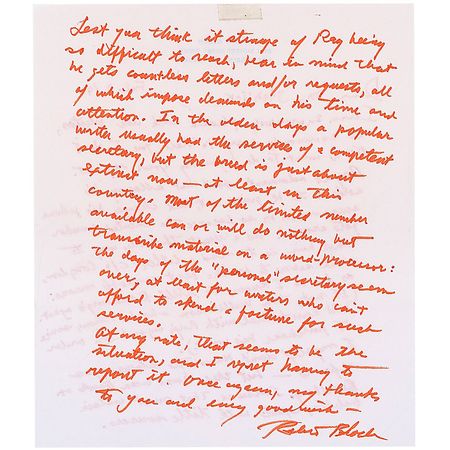 Lest you think it strange of Ray being
so difficult to reach, bear in mind that
he gets countless letters and/or requests, all
of which impose demands on his time and
attention. In the olden days a popular
writer usually had the services of a competent
secretary, but the breed is just about
extinct now — at least in this
country. Most of the limited number
available can or will do nothing but
transcribe material on a word-processor:
the days of the "personal" secretary seem
over, at least for writers who can't
afford to spend a fortune for such
services.
At any rate, that seems to be the
situation, and I regret having to
report it. Once again, my thanks
to you and every good wish —
Robert Bloch